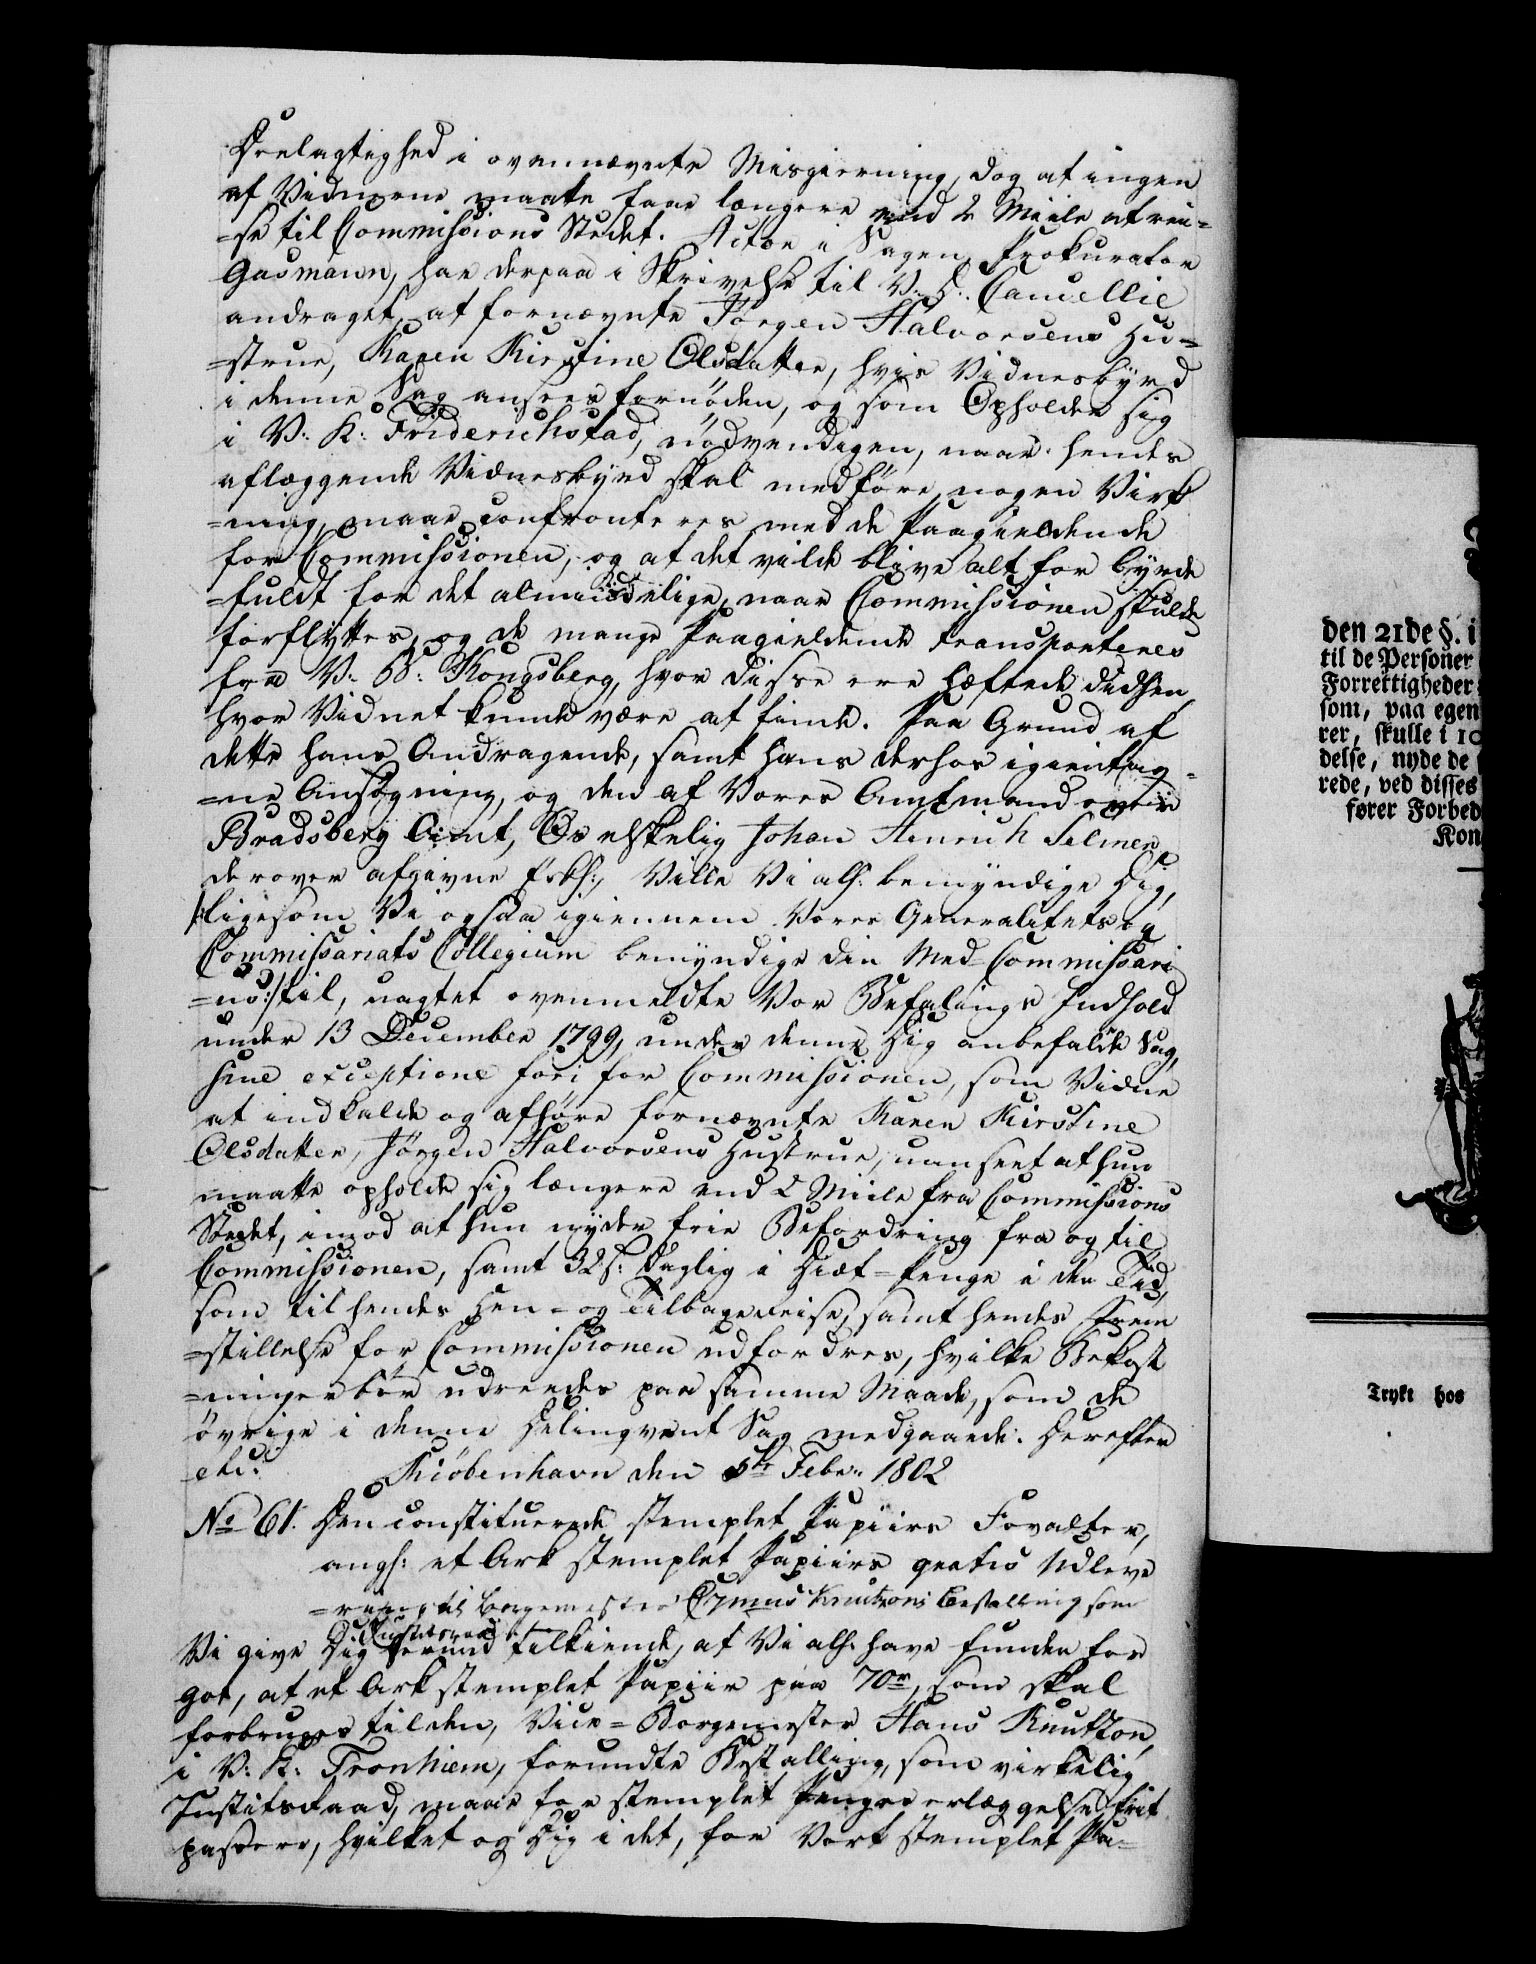 Deelagtighed i ovennævnte Misgierning, dog at ingen
af Vidnerne maatte have længere end 2 Miile at rei-
=se til Commissions Stedet. Actor i Sagen Prokurator
Gasmann, har derpaa i Skrivelse til V. D. Cancellie
andraget, at fornævnte Jörgen Halvorsens Hu=
=strue, Karen Kirstine Olsdatter, hvis Vidnesbyrd
i denne Sag ansees fornöden, og som Opholder sig
i V. K. Friderichstad, nödvendigen, naar hendes
aflæggende Vidnesbyrd skal medföre nogen Virk
=ning, maae confronteres med de Paagieldende
for Commissionen, og at det vilde blive alt for byrde
=fuldt for det almindelige, naar Commissionen skulde
forflyttes, og de mange Paagieldende transporteres
fra V. B. Kongsberg, hvor disse ere hæftede didhen,
hvor Vidnet kunde være at finde. Paa Grund af
dette hans Andragende, samt hans derhos igientag-
=ne Ansögning, og den af Vores Amtmand over
Bradsberg Amt, Os elskelig Johan Henrich Selmer,
derover afgivne Erkl:, Ville Vi alh: bemyndige Dig,
/:ligesom Vi ogsaa igiennem Vores Generalitets og
Commissariats Collegium bemyndige din Med-Commissari
=us:/ til, uagtet ovenmeldte Vor Befalings Indhold
under 13 December 1799, under denne Dig anbefalede Sag,
sine exceptione fori for Commissionen, som Vidne
at indkalde og afhöre fornævnte Karen Kirstine
Olsdatter, Jörgen Halvorsens Hustrue, uanseet at hun
maatte opholde sig længere end 2 Miile fra Commissions
Stedet, imod at hun nyder frie Befordring fra og til
Commissionen, samt 32 s: daglig i Diæt-Penge i den Tid,
som til hendes Hen- og Tilbagereise, samt hendes Frem
=stillelse for Commissionen udfordres, hvilke Bekost
=ninger bör udredes paa samme Maade, som de
övrige i denne Delinqvent Sag medgaaende. Herefter
etc: Kiöbenhavn den 5te Febr: 1802
No 61. Den constituerede stemplet Papiirs Forvalter,
angl: et Ark stemplet Papiirs gratis Udleve
=ring til Borgemester Hans Knutzons Bestalling som
Justitsraad
Vi give Dig herved tilkiende, at Vi alh: have funden for
got, at et Ark stemplet Papiir paa 70r, som skal
forbruges til den, Vice-Borgemester Hans Knutzon,
i V. K. Tronhiem, forundte Bestalling, som virkelig
Justitsraad, maae for stemplet Penges erlæggelse frit
passere, hvilket og Dig i det, for Vort stemplet Pa-
den 21de §. i
til de Personer
Forrettigheder
som, paa egen
rer, skulle i 10
delse, nyde de
rede, ved disses
fører Forbed
Kon
Trykt hos